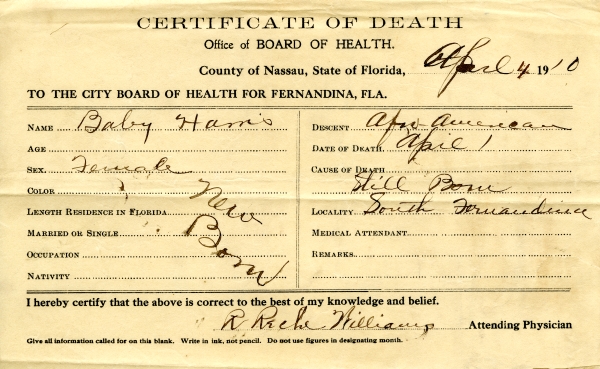 CERTIFICATE OF DEATH
Office of BOARD OF HEALTH.
County of Nassau, State of Florida, April 4 1910
TO THE CITY BOARD OF HEALTH FOR FERNANDINA, FLA.
NAME Baby Harris
AGE
SEX Female
COLOR
LENGTH RESIDENCE IN FLORIDA
MARRIED OR SINGLE
OCCUPATION
NATIVITY
New Born
DESCENT Afro American
DATE OF DEATH April 1
CAUSE OF DEATH
Still Born
LOCALITY South Fernandina
MEDICAL ATTENDANT
REMARKS
I hereby certify that the above is correct to the best of my knowledge and belief.
R Williams Attending Physician
Give all information called for on this blank. Write in ink, not pencil. Do not use figures in designating month.